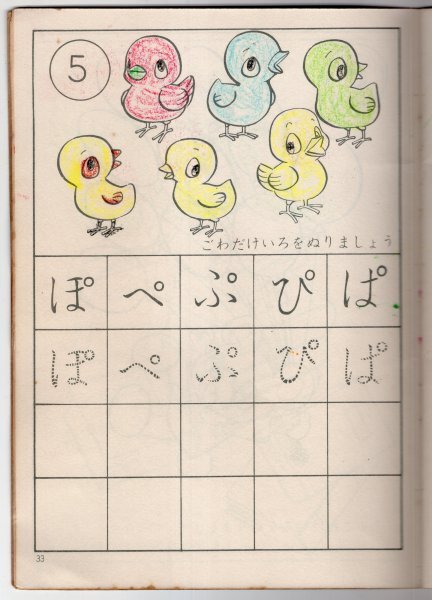 5
ごわだけいろをぬりましょう
ぽ ぺ ぷ ぴ ぱ
ぽ ぺ ぷ ぴ ぱ
33